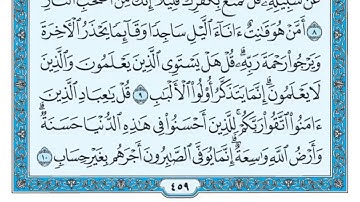 عَن سَبِيلِهِۦۚ قُلۡ تَمَتَّعۡ بِكُفۡرِكَ قَلِيلًا إِنَّكَ مِنۡ أَصۡحَٰبِ ٱلنَّارِ
٨ أَمَّنۡ هُوَ قَٰنِتٌ ءَانَآءَ ٱلَّيۡلِ سَاجِدًا وَقَآئِمًا يَحۡذَرُ ٱلۡأٓخِرَةَ
وَيَرۡجُواْ رَحۡمَةَ رَبِّهِۦۗ قُلۡ هَلۡ يَسۡتَوِي ٱلَّذِينَ يَعۡلَمُونَ وَٱلَّذِينَ
لَا يَعۡلَمُونَۗ إِنَّمَا يَتَذَكَّرُ أُوْلُواْ ٱلۡأَلۡبَٰبِ ٩ قُلۡ يَٰعِبَادِ ٱلَّذِينَ
ءَامَنُواْ ٱتَّقُواْ رَبَّكُمۡۚ لِلَّذِينَ أَحۡسَنُواْ فِي هَٰذِهِ ٱلدُّنۡيَا حَسَنَةٌۗ
وَأَرۡضُ ٱللَّهِ وَٰسِعَةٌۗ إِنَّمَا يُوَفَّى ٱلصَّٰبِرُونَ أَجۡرَهُم بِغَيۡرِ حِسَابٍ ١٠
٤٥٩